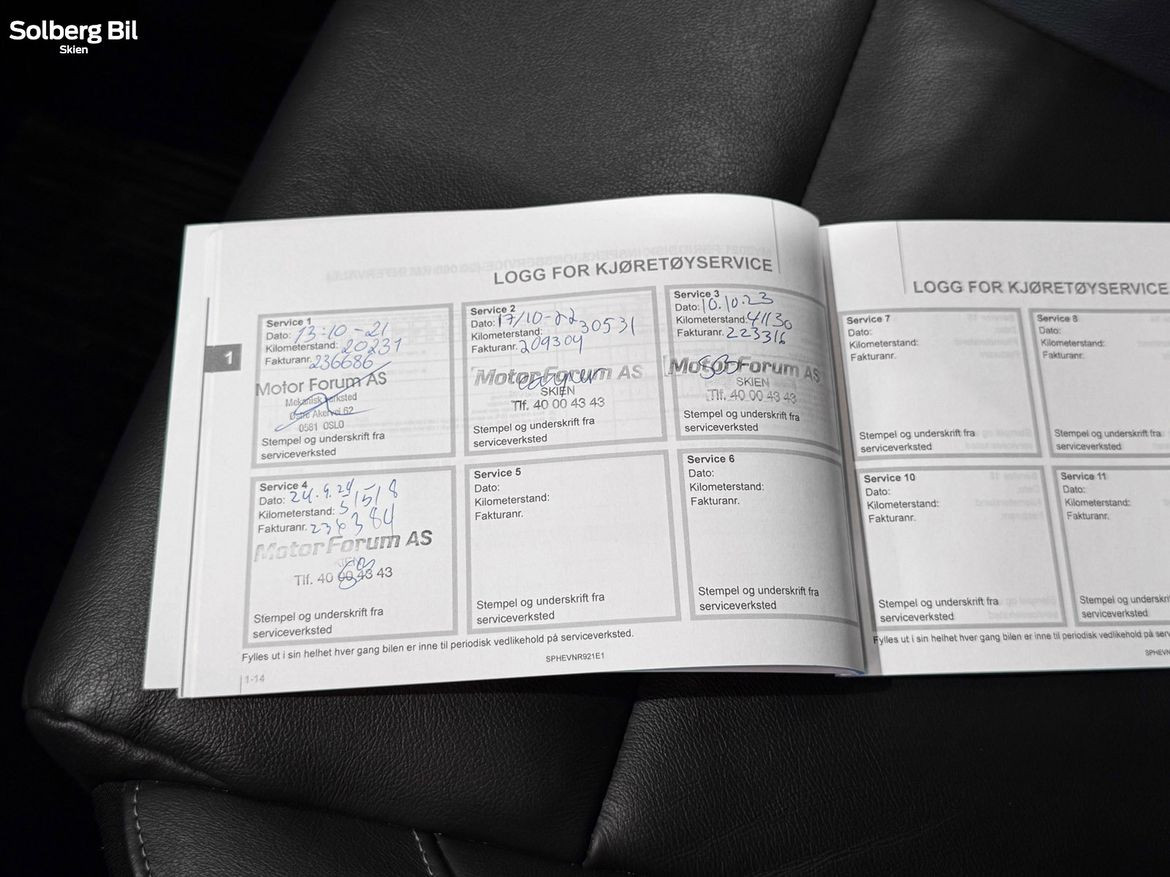 Solberg Bil
Skien
LOGG FOR KJØRETØYSERVICE
1
Service 1
Dato: 13-10-21
Kilometerstand: 20231
Fakturanr. 236686
Motor Forum AS
Mekanisk verksted
Østre Akervei 62
0581 OSLO
Stempel og underskrift fra
serviceverksted
Service 2
Dato: 17/10-22
Kilometerstand: 30531
Fakturanr. 209304
Motor Forum AS
SKIEN
Tlf. 40 00 43 43
Stempel og underskrift fra
serviceverksted
Service 3
Dato: 10.10.23
Kilometerstand: 41130
Fakturanr. 223316
Motor Forum AS
SKIEN
Tlf. 40 00 43 43
Stempel og underskrift fra
serviceverksted
Service 4
Dato: 24.9.24
Kilometerstand: 51518
Fakturanr. 236384
Motor Forum AS
SKIEN
Tlf. 40 00 43 43
Stempel og underskrift fra
serviceverksted
Service 5
Dato:
Kilometerstand:
Fakturanr.
Stempel og underskrift fra
serviceverksted
Service 6
Dato:
Kilometerstand:
Fakturanr.
Stempel og underskrift fra
serviceverksted
Fylles ut i sin helhet hver gang bilen er inne til periodisk vedlikehold på serviceverksted.
SPHEVNR921E1
1-14
LOGG FOR KJØRETØYSERVICE
Service 7
Dato:
Kilometerstand:
Fakturanr.
Stempel og underskrift fra
serviceverksted
Service 8
Dato:
Kilometerstand:
Fakturanr.
Stempel og underskrift fra
serviceverksted
Service 10
Dato:
Kilometerstand:
Fakturanr.
Stempel og underskrift fra
serviceverksted
Service 11
Dato:
Kilometerstand:
Fakturanr.
Stempel og underskrift fra
serviceverksted
Fylles ut i sin helhet hver gang bilen er inne til periodisk vedlikehold på
SPHEVN